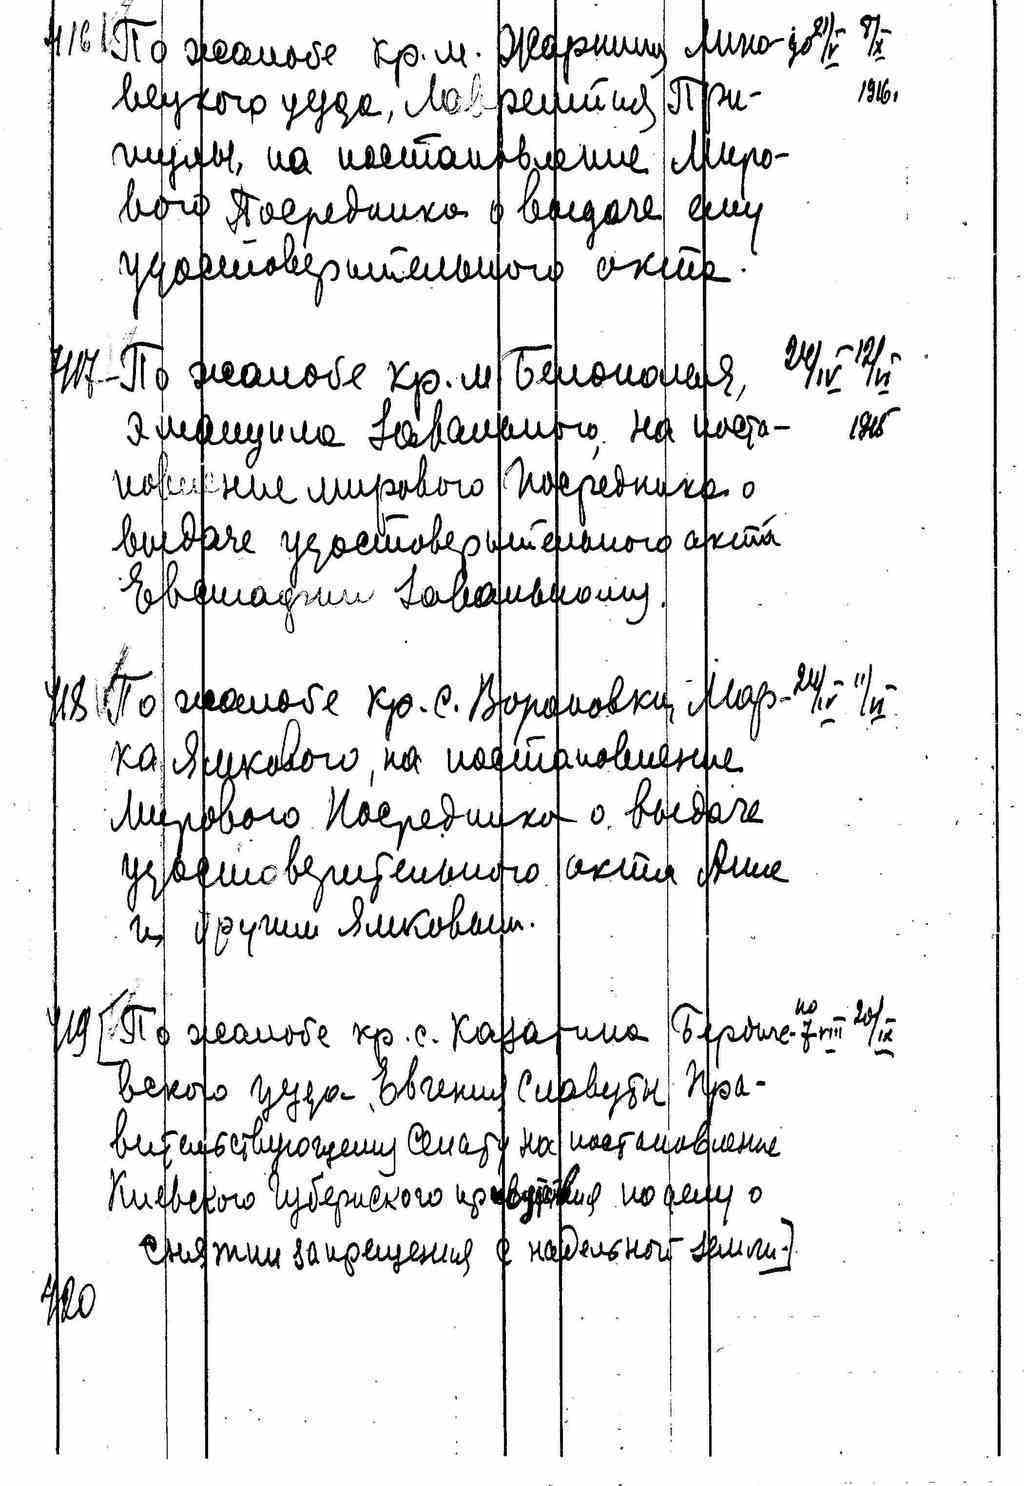 416 По жалобе кр. м. Жорнищ Липо- до 21/V 8/X
вецкого уезда, Лаврентия При- 1916.
на постановление Миро-
вого Посредника о выдаче ему
удостоверительного акта.
417 По жалобе кр. м Белополья, 24/IV 12/VI
Эмануила Завального, на поста- 1915
новление мирового Посредника о
выдаче удостоверительного акта
Завальному.
418 По жалобе кр. с. Вороновки, Мар- 24/IV 11/VI
ка Ямкового, на постановление
Мирового Посредника о выдаче
удостоверительного акта Анне
и другим Ямковым.
419 [По жалобе кр. с. Казатина Бердиче- по 7 VIII 20/IX
вского уезда Евгения Славуты Пра-
вительствующему Сенату на постановление
Киевского Губернского присутствия по делу о
снятии запрещения с надельной земли.]
420